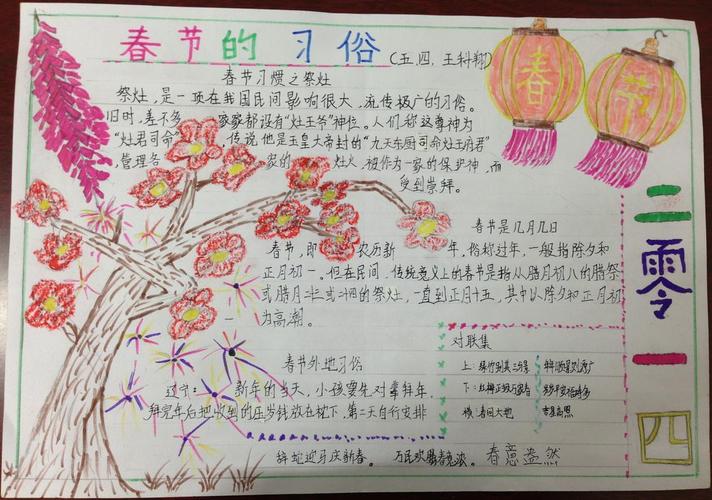 春节的习俗
(五.四.王科翔)
春节
春节习惯之祭灶
祭灶,是一项在我国民间影响很大、流传极广的习俗。
旧时,差不多家家都设有“灶王爷”神位。人们称这尊神为
“灶君司命”传说他是玉皇大帝封的“九天东厨司命灶王府君”
管理各家的灶火,被作为一家的保护神,而
受到崇拜。
春节是几月几日
春节,即农历新年,俗称过年,一般指除夕和
正月初一,但在民间,传统意义上的春节是指从腊月初八的腊祭
或腊月二十三或二十四的祭灶,一直到正月十五,其中以除夕和正月初
一为高潮。
春节外地习俗
辽宁:新年的当天,小孩要先对长辈拜年,
拜完年后把收到的压岁钱放在枕下,第二天自行安排
对联集
上:
下:
横:春回大地
吉星高照
辞蛇迎马庆新春。万民欢腾春意浓。春意盎然
二零一四